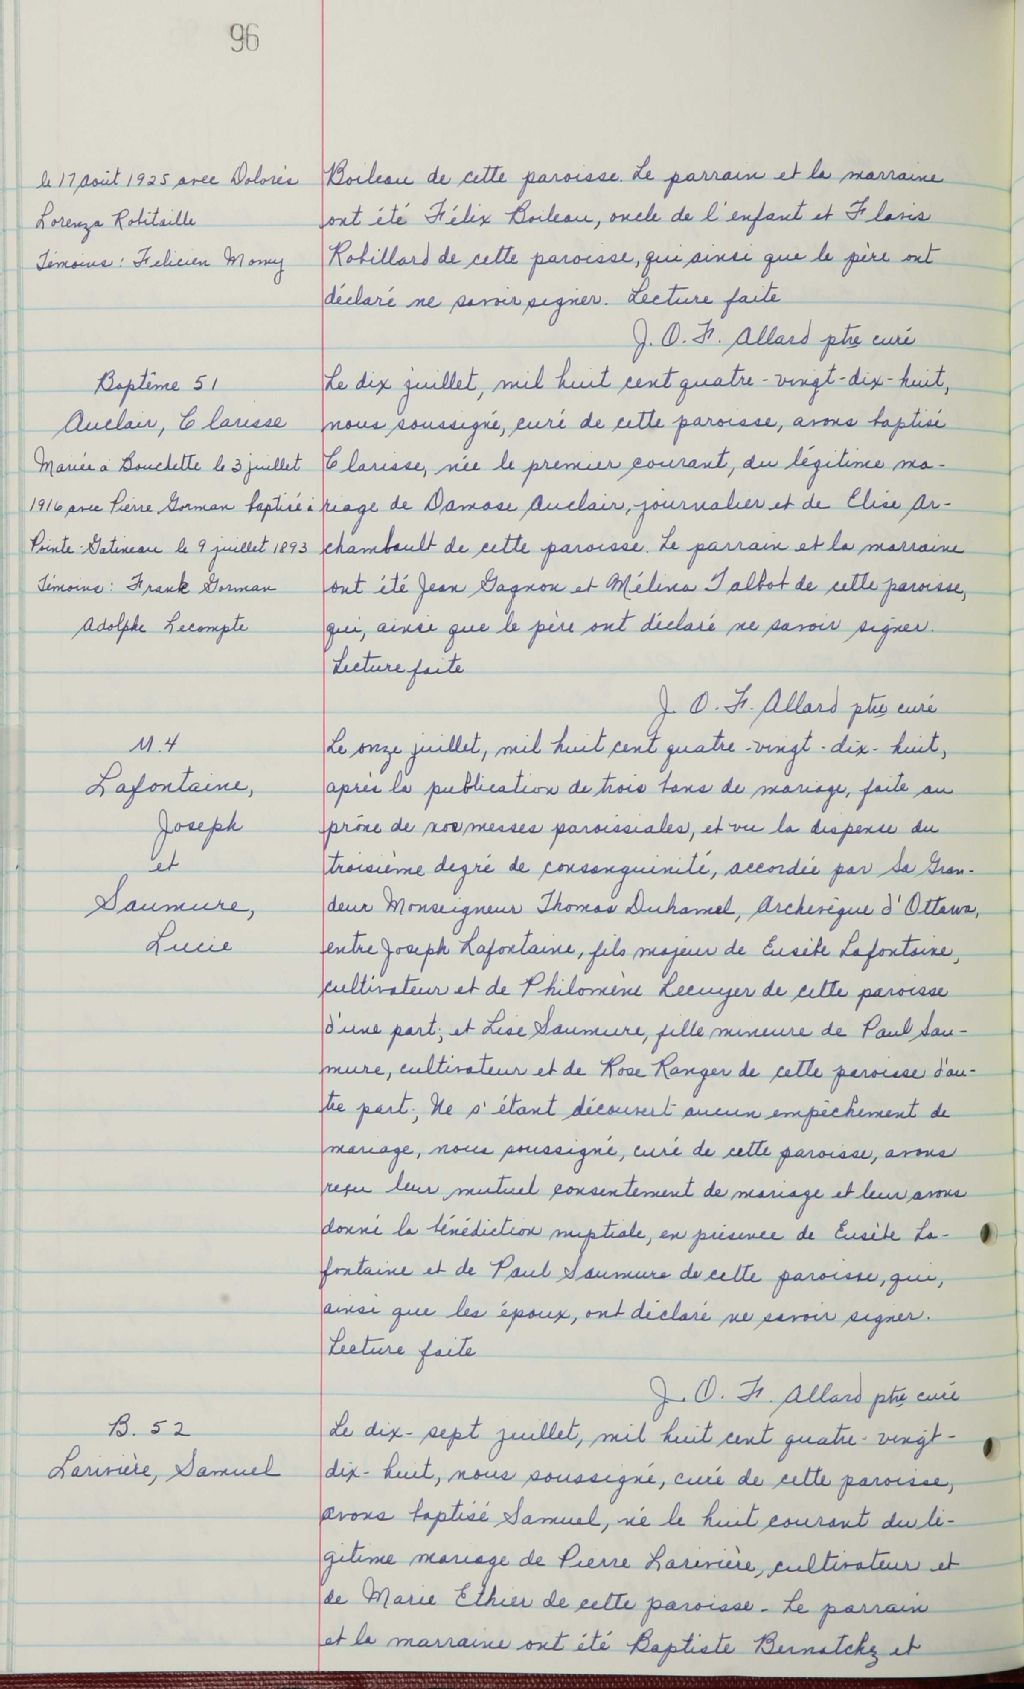 96
le 17 août 1925 avec Dolorès
Lorenza Robitaille
Témoins: Felicien Momy
Boileau de cette paroisse. Le parrain et la marraine
ont été Félix Boileau, oncle de l'enfant et Flavis
Robillard de cette paroisse, qui ainsi que le père ont
déclaré ne savoir signer. Lecture faite
J. O. F. Allard ptre curé
Baptême 51
Auclair, Clarisse
Mariée à Bouchette le 3 juillet
1916 avec Pierre Gorman baptisé à
Pointe-Gatineau le 9 juillet 1893
Témoins: Frank Gorman
Adolphe Lecompte
Le dix juillet, mil huit cent quatre-vingt-dix-huit,
nous soussigné, curé de cette paroisse, avons baptisé
Clarisse, née le premier courant, du légitime ma-
riage de Damase Auclair, journalier et de Elise Ar-
chambault de cette paroisse. Le parrain et la marraine
ont été Jean Gagnon et Mélina Talbot de cette paroisse,
qui, ainsi que le père ont déclaré ne savoir signer.
Lecture faite
J. O. F. Allard ptre curé
M. 4
Lafontaine,
Joseph
et
Saumure,
Lucie
Le onze juillet, mil huit cent quatre-vingt-dix-huit,
après la publication de trois bans de mariage, faite au
prône de nos messes paroissiales, et vu la dispense du
troisième degré de consanguinité, accordée par Sa Gran-
deur Monseigneur Thomas Duhamel, Archevêque d'Ottawa,
entre Joseph Lafontaine, fils majeur de Eusèbe Lafontaine,
cultivateur et de Philomène Lecuyer de cette paroisse
d'une part; et Lise Saumure, fille mineure de Paul Sau-
mure, cultivateur et de Rose Ranger de cette paroisse d'au-
tre part; Ne s'étant découvert aucun empêchement de
mariage, nous soussigné, curé de cette paroisse, avons
reçu leur mutuel consentement de mariage et leur avons
donné la bénédiction nuptiale, en présence de Eusèbe La-
fontaine et de Paul Saumure de cette paroisse, qui,
ainsi que les époux, ont déclaré ne savoir signer.
Lecture faite
J. O. F. Allard ptre curé
B. 52
Larivière, Samuel
Le dix-sept juillet, mil huit cent quatre-vingt-
dix-huit, nous soussigné, curé de cette paroisse,
avons baptisé Samuel, né le huit courant du lé-
gitime mariage de Pierre Larivière, cultivateur et
de Marie Ethier de cette paroisse - Le parrain
et la marraine ont été Baptiste Bernatchz et